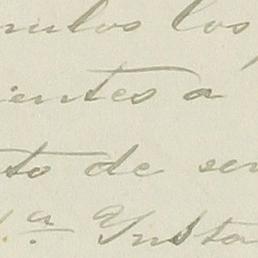 mulos los
ientes a
to de ser
1.ª Ynsta